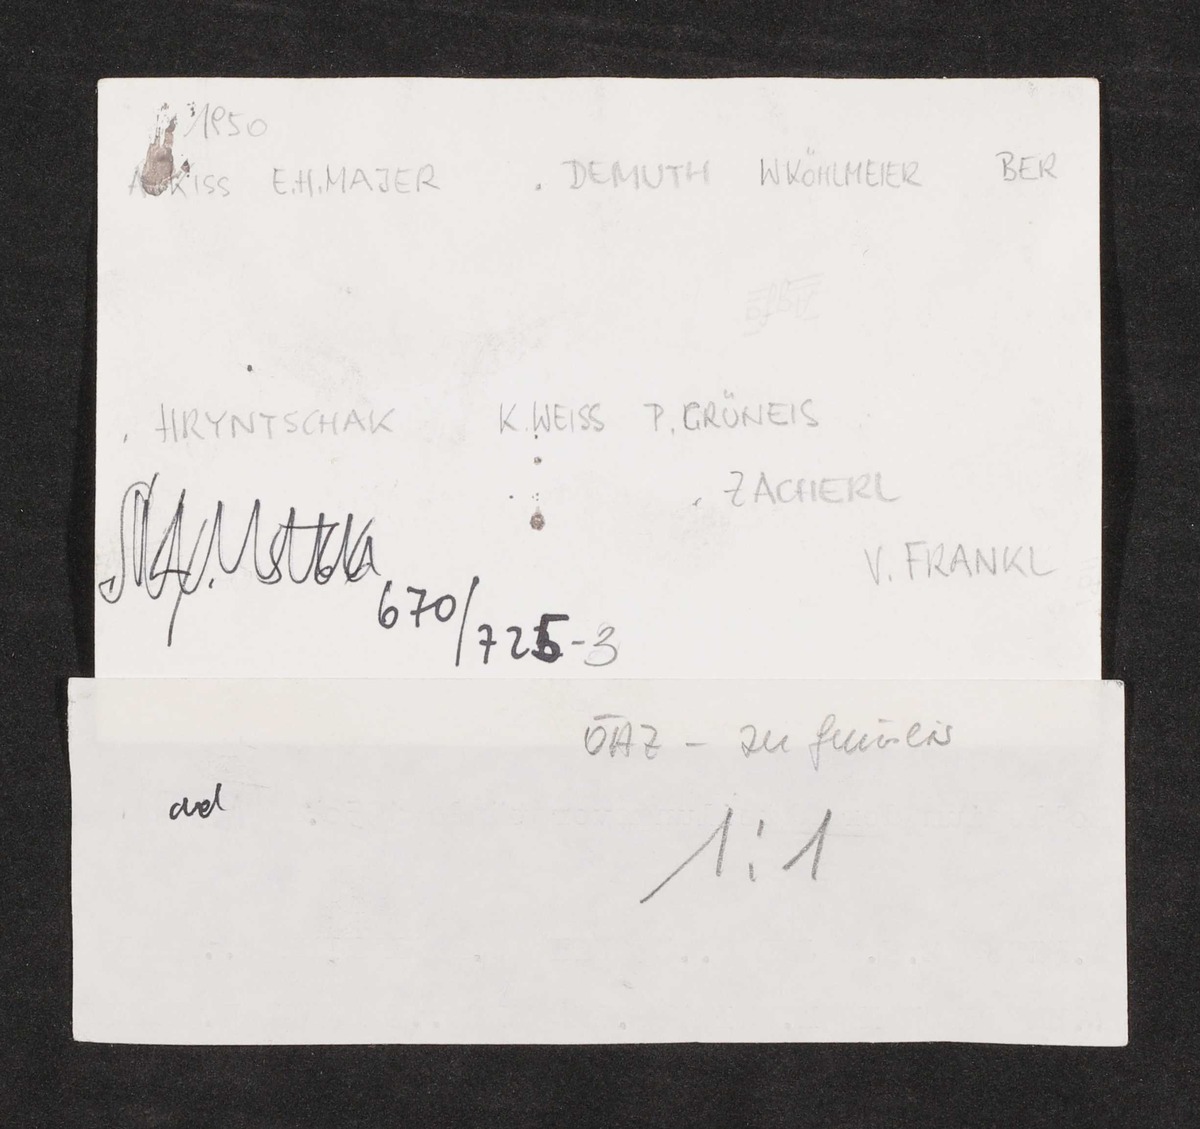 1950
KISS E.H.MAJER . DEMUTH W KÖHLMEIER BER
. HRYNTSCHAK K.WEISS P. GRÜNEIS
. ZACHERL
V. FRANKL
670/725-3
ÖAZ - zu
1:1